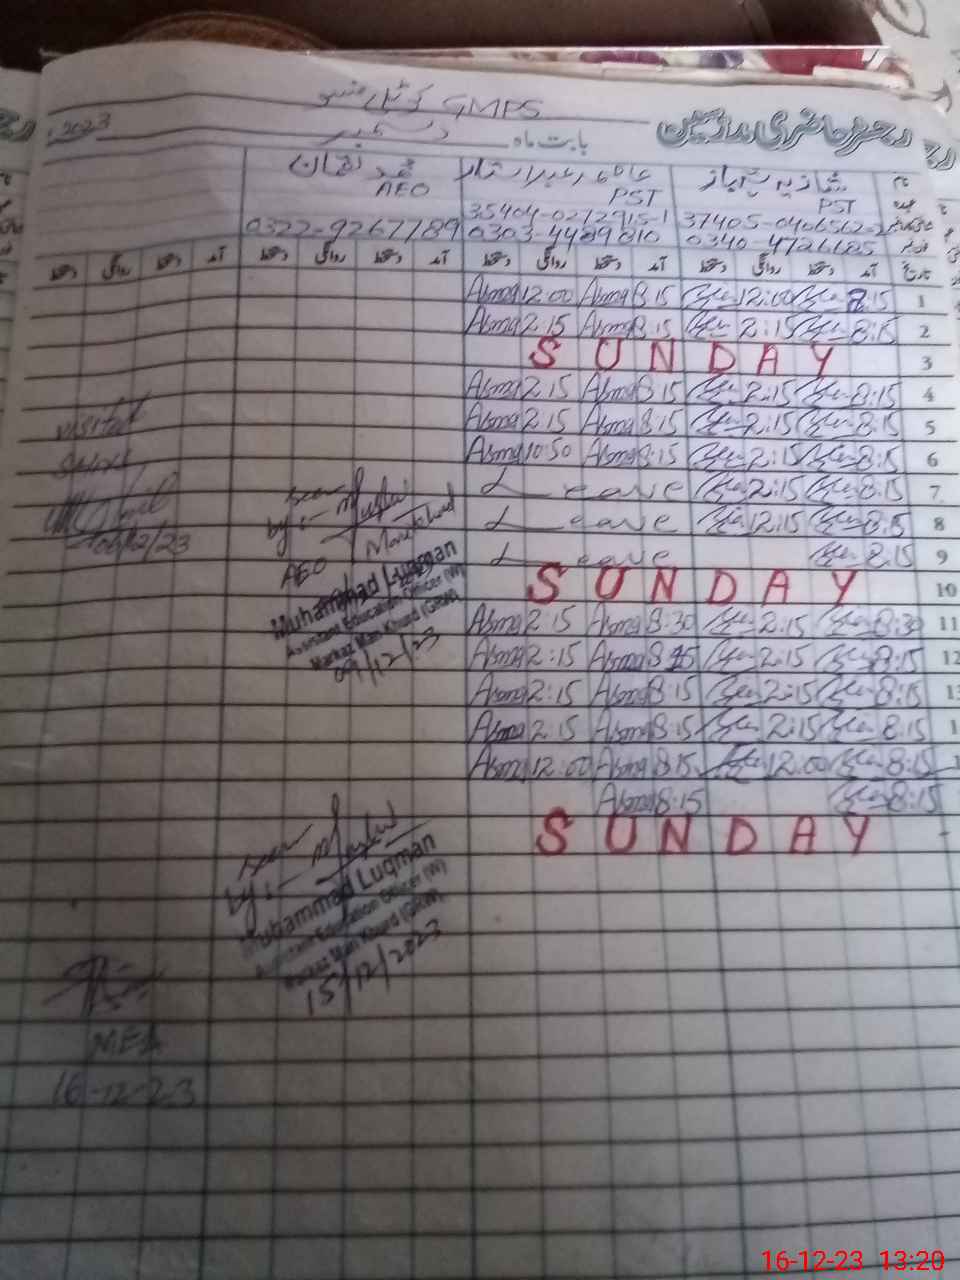 GMPS
رجسٹر حاضری ملازمین
بابت ماہ دسمبر 2023
نام شازیہ شہباز
عہدہ PST PST AEO
37405-0406562-2 35404-0212915-1
0340-4726685 0303-4489810 0322-9267789
تاریخ آمد دستخط روانگی دستخط آمد دستخط روانگی دستخط آمد دستخط روانگی دستخط آمد دستخط روانگی دستخط
1 8:15 12:00 8:15 Asma 12:00 Asma
2 8:15 2:15 8:15 Asma 2:15 Asma
3 SUNDAY
4 8:15 2:15 8:15 Asma 2:15 Asma
5 8:15 2:15 8:15 Asma 2:15 Asma
6 8:15 2:15 8:15 Asma 10:50 Asma
7 8:15 2:15 Leave
8 8:15 12:15 Leave
9 8:15 Leave
10 SUNDAY
11 8:30 2:15 8:30 Asma 2:15 Asma
12 8:15 2:15 8:15 Asma 2:15 Asma
8:15 2:15 8:15 Asma 2:15 Asma
8:15 2:15 8:15 Asma 2:15 Asma
8:15 12:00 8:15 Asma 12:00 Asma
8:15 8:15 Asma
SUNDAY
visited
School
06/12/23
seen
by:-
AEO
Muhammad Luqman
Assistant Education Officer (W)
Markaz Man Khurd (GRW)
09/12/23
seen
by:-
Muhammad Luqman
Assistant Education Officer (W)
Markaz Man Khurd (GRW)
15/12/2023
MEA
16-12-23
16-12-23 13:20